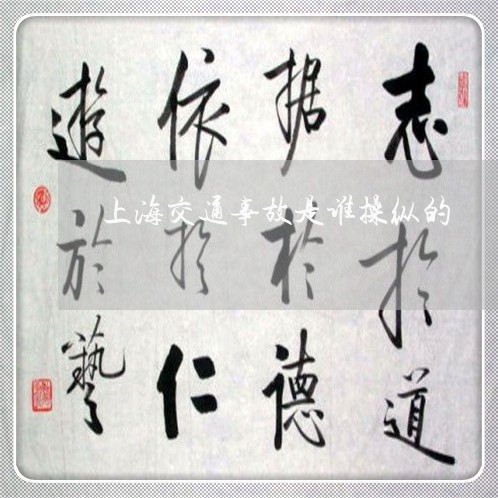 志於道
据於德
依於仁
遊於藝
上海交通事故是谁操纵的